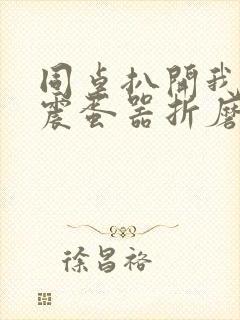 同桌扒開我
震蛋器折磨
徐昌裕